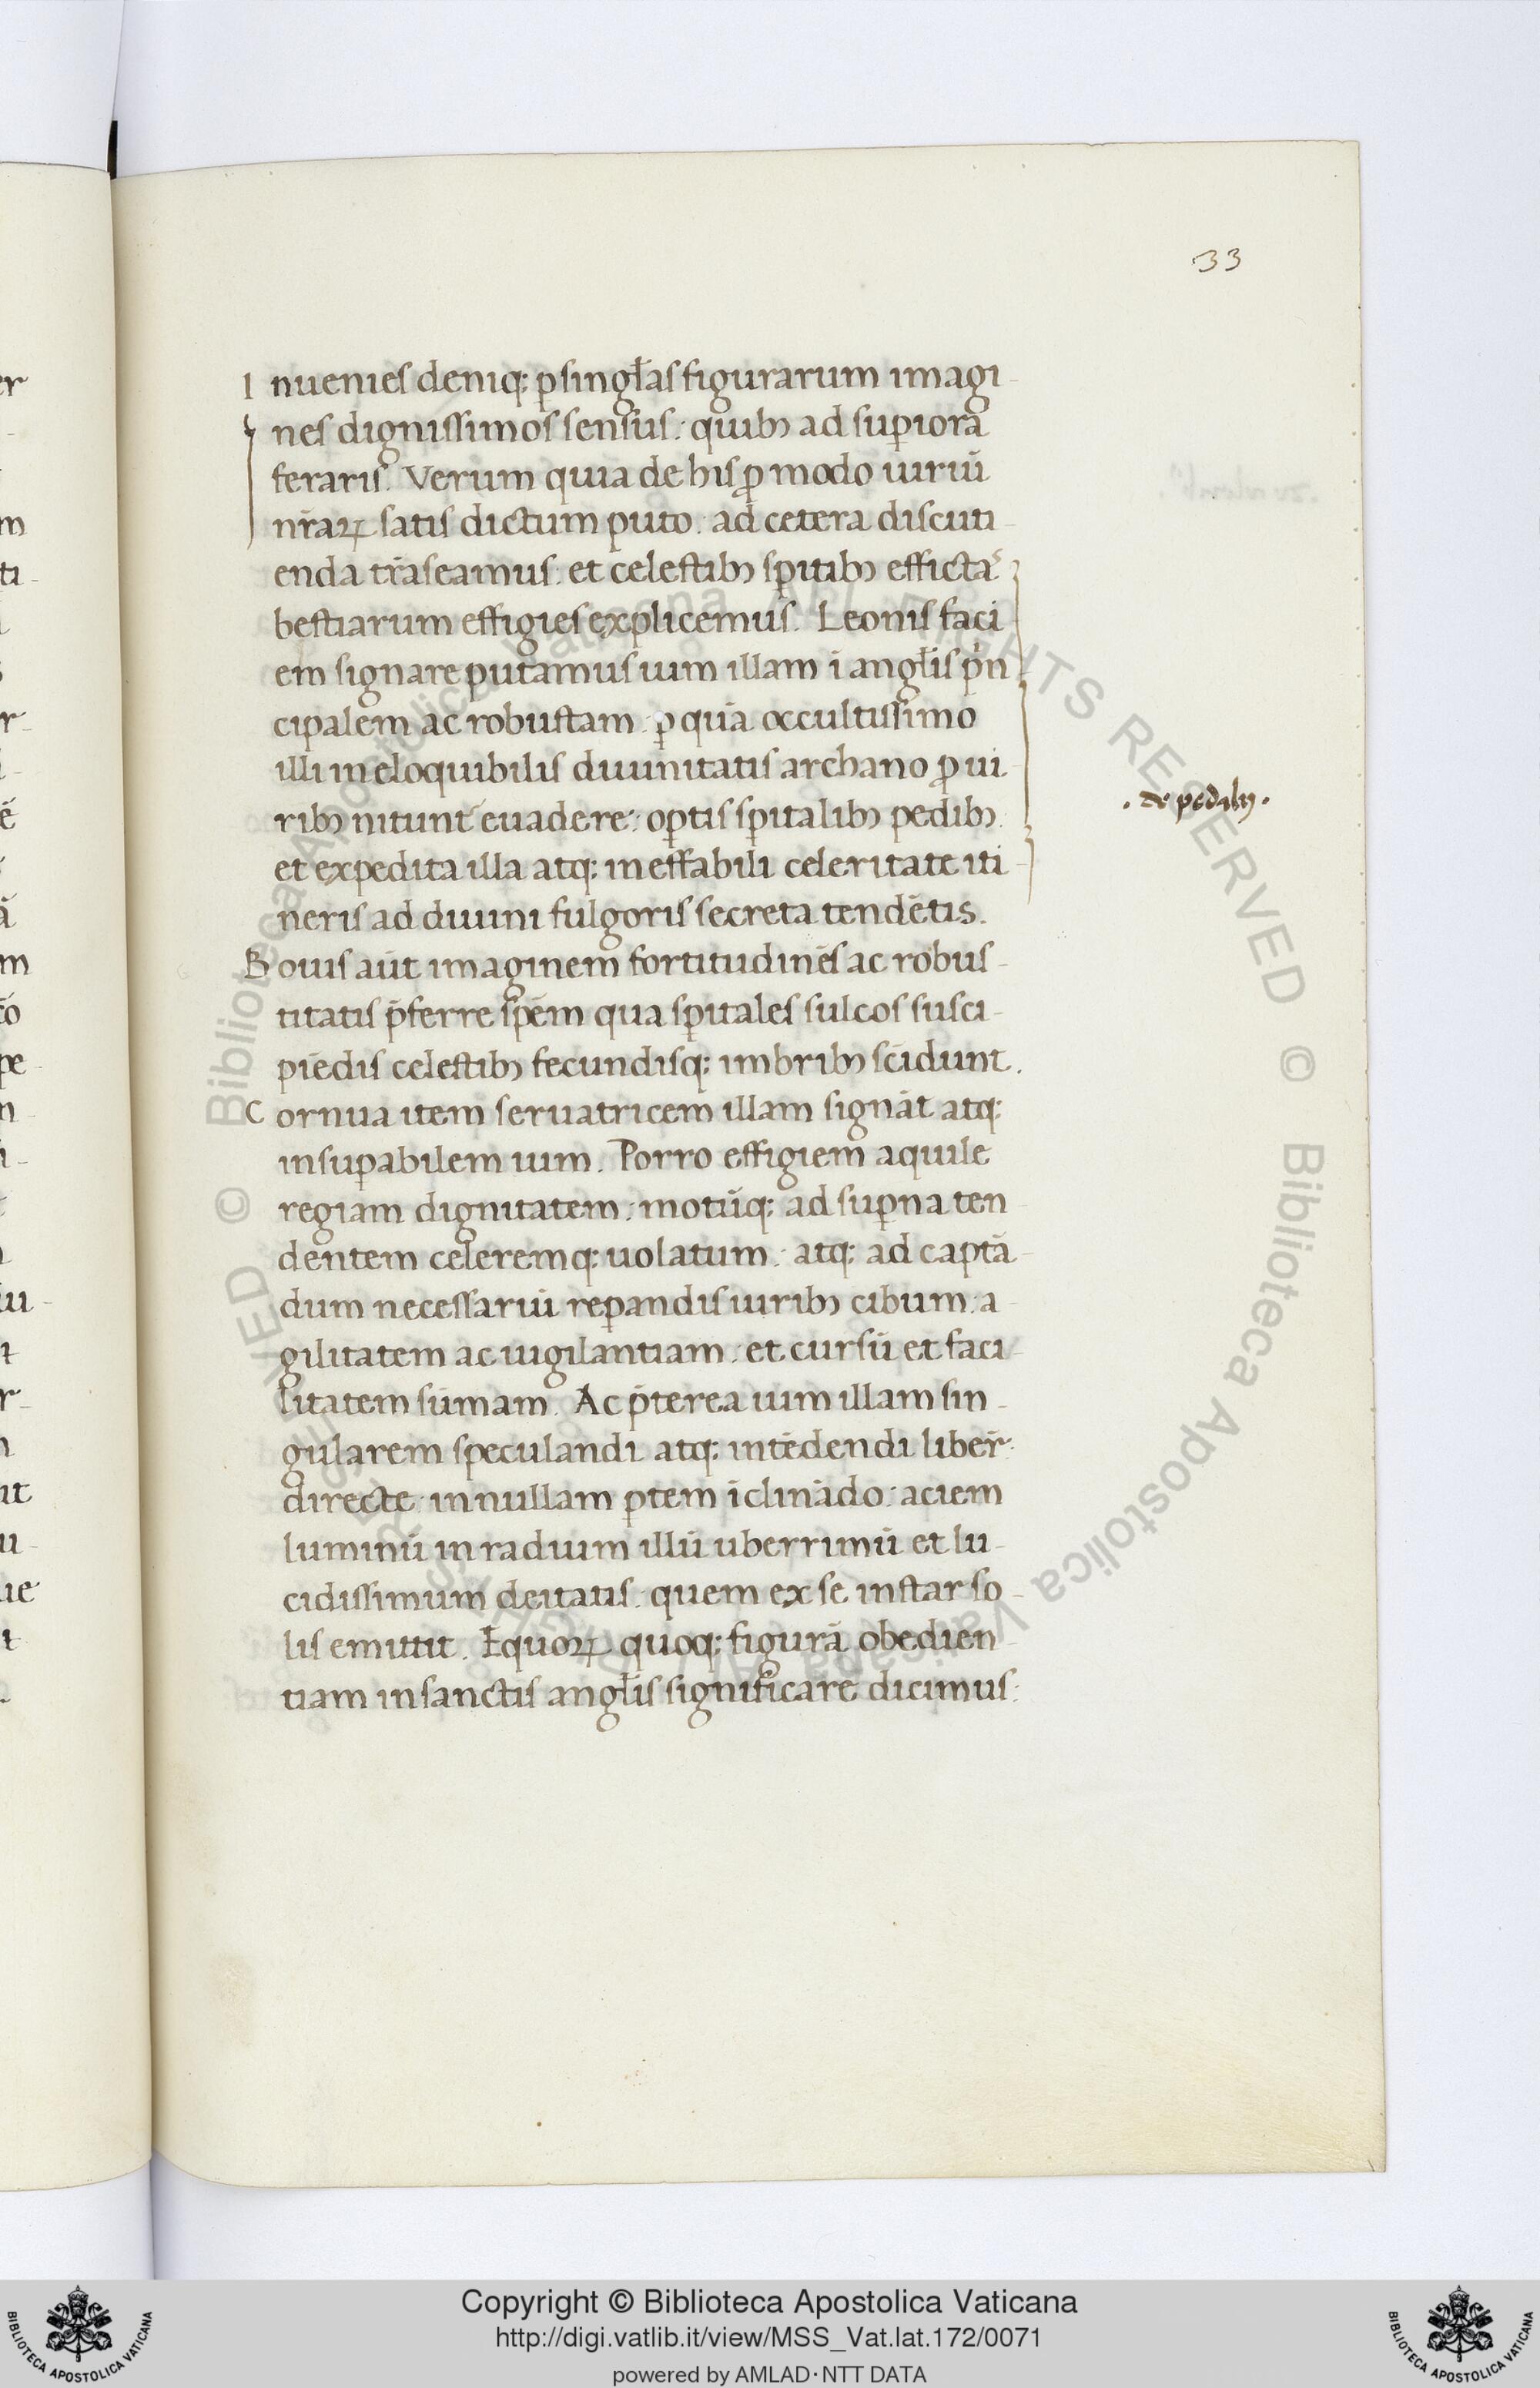 33
Inuenies deniq; ꝑ singl̃as figurarum imagi-
nes dignissimos sensus: quibꝫ ad suꝑiora
feraris. Verum quia de his ꝓ modo uiriũ
nr̃aꝝ satis dictum puto: ad cetera discuti-
enda trãseamus: et celestibꝫ spitibꝫ effictas
bestiarum effigies explicemus. Leonis faci-
em signare putamus uim illam ĩ angl̃is pin
cipalem ac robustam: ꝑ quã occultissimo
illi ineloquibilis diuinitatis archano ꝓ ui-
ribꝫ nitunt̃ euadere: optis spitalibꝫ pedibꝫ
et expedita illa atq; ineffabili celeritate iti-
neris ad diuini fulgoris secreta tendẽtis.
. de pedibꝫ .
Bouis aũt imaginem fortitudinẽs ac robus-
titatis p̃ferre spẽm qua spitales sulcos susci-
piẽdis celestibꝫ fecundisq; imbribꝫ scĩdunt.
Cornua item seruatricem illam signãt atq;
insuꝑabilem uim. Porro effigiem aquile
regiam dignitatem: motũq; ad suꝑna ten
dentem celeremq; uolatum: atq; ad captã-
dum necessariũ reꝑandis uiribꝫ cibum: a-
gilitatem ac uigilantiam: et cursũ et faci-
litatem sũmam. Ac p̃terea uim illam sin-
gularem speculandi atq; intẽdendi liber̃:
directe: in nullam ꝑtem ĩclinãdo: aciem
luminũ in radium illũ uberrimũ et lu-
cidissimum deitatis: quem ex se instar so-
lis emittit. Equoꝝ quoq; figurã obedien-
tiam in sanctis angl̃is significare dicimus:
Copyright © Biblioteca Apostolica Vaticana
http://digi.vatlib.it/view/MSS_Vat.lat.172/0071
powered by AMLAD·NTT DATA